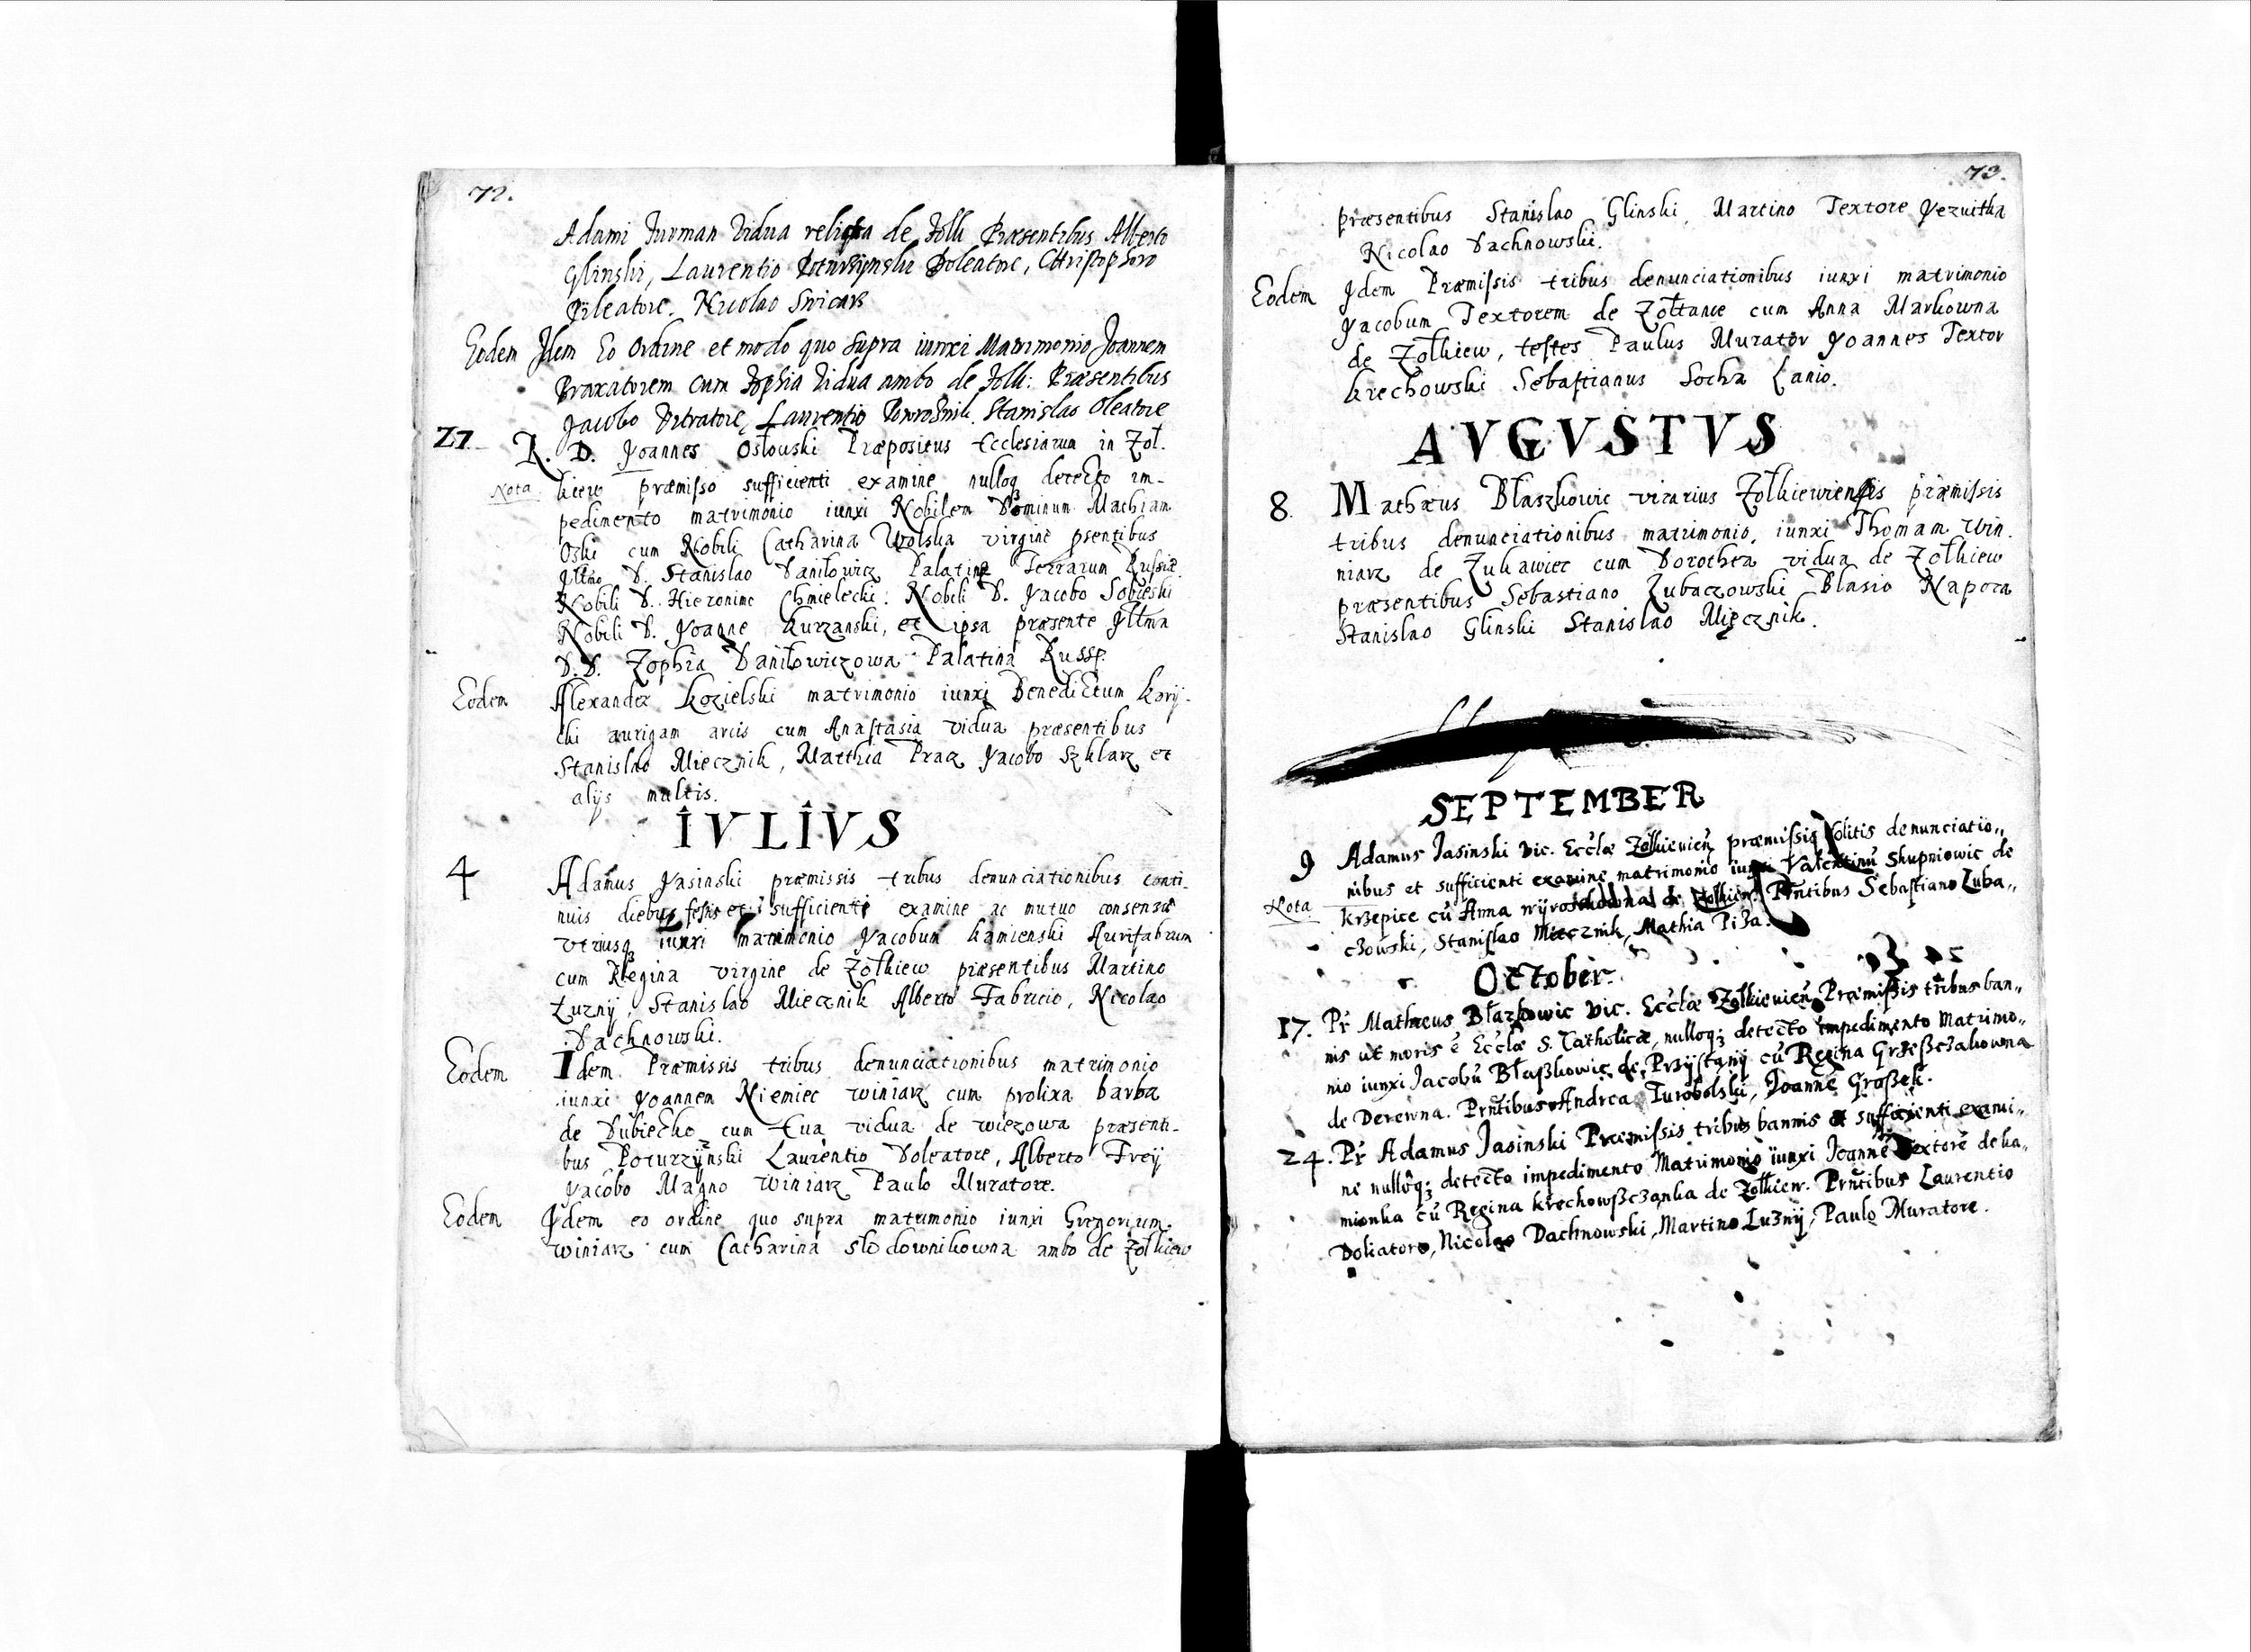 72.
Adami Furman Vidua relicta de Zolk Præsentibus Alberto
Glinski, Laurentio Poturzynski Doleatore, Christophoro
Pileatore. Nicolao Snicarz
Eodem Idem Eo Ordine et modo quo supra iunxi Matrimonio Joannem
Braxatorem cum Zophia Vidua ambo de Zolk: Præsentibus
Jacobo Vitratore, Laurentio Powroznik. Stanislao Oleatore
27 R. D. Joannes Osłowski Præpositus Ecclesiarum in Żoł.
Nota kiew præmisso sufficienti examine nulloq₃ detecto im-
pedimento matrimonio iunxi Nobilem Dominum Mathiam
Oski cum Nobili Catharina Wolska virgine psentibus
Jllmo D. Stanislao Daniłowicz Palatino Terrarum Russiæ.
Nobili D. Hieronimo Chmielecki. Nobili D. Jacobo Sobieski
Nobili D. Joanne Kurzanski, et ipsa præsente Jllma
D.D. Zophia Daniłowiczowa Palatina Russ.
Eodem Alexander Kozielski matrimonio iunxi Benedictum Korij-
cki aurigam arcis cum Anastasia vidua præsentibus
Stanislao Miecznik, Matthia Praz Jacobo Szklarz et
alijs multis.
IVLIVS
4 Adamus Jasinski præmissis tribus denunciationibus conti-
nuis diebus festis et sufficienti examine ac mutuo consensu
vtriusq₃ iunxi matrimonio Jacobum Kamienski Aurifabrum
cum Regina virgine de Żołkiew præsentibus Martino
Luznÿ, Stanislao Miecznik Alberto Fabricio, Nicolao
Dachnowski.
Eodem Idem Præmissis tribus denunciationibus matrimonio
iunxi Joannem Niemiec winiarz cum prolixa barba
de Dubiecko cum Eua vidua de wiezowa præsenti-
bus Poturzÿnski Laurentio Doleatore, Alberto Freÿ
Jacobo Magno winiarz Paulo Muratore.
Eodem Jdem eo ordine quo supra matrimonio iunxi Gregorium
winiarz cum Catharina slodownikowna ambo de Żołkiew
73.
præsentibus Stanislao Glinski, Martino Textore Jezuitka
Nicolao Dachnowski.
Eodem Jdem Præmissis tribus denunciationibus iunxi matrimonio
Jacobum Textorem de Zołtance cum Anna Markowna
de Żołkiew, testes Paulus Murator Joannes Textor
krechowski Sebastianus Socha Lanio.
AVGVSTVS
8. Mathæus Błaszkowic vicarius Żołkiewiensis præmissis
tribus denunciationibus matrimonio, iunxi Thomam Win.
niarz de Zukawiec cum Dorothea vidua de Żołkiew
præsentibus Sebastiano Lubaczowski Blasio Napora
Stanislao Glinski Stanislao Miecznik.
SEPTEMBER
9 Adamus Jasinski vic. Ecclæ Zolkievien præmissis solitis denunciatio„
nibus et sufficienti examine matrimonio iunxi Valentinū Skupniowic de
Nota krzepice cū Anna de Zolkiew. Prntibus Sebastiano Luba„
czowski, Stanislao Miecznik, Mathia Piza.
October.
17. Pr Mathæus Błazkowic vic. Ecclæ Zolkievien Præmissis tribus ban„
nis ut moris ē Ecclæ S. Catholicæ, nulloq; detecto impedimento Matrimo„
nio iunxi Jacobū Błaszkowic de Przystanÿ cū Regina Grzeszczakowna
de Derewna. Prntibus Andrea Turobolski, Joanne Groszek.
24. Pr Adamus Jasinski Præmissis tribus bannis et sufficienti exami„
ne nulloq; detecto impedimento Matrimonio iunxi Joannē Textorē de ka„
mionka cū Regina krechowszczanka de Zolkiew. Prntibus Laurentio
Doliatore, Nicolao Dachnowski, Martino Luznÿ, Paulo Muratore.